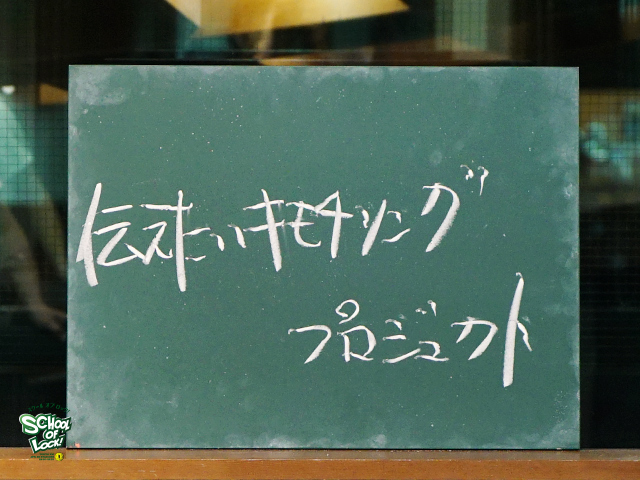 伝えたいキモチソング
プロジェクト
SCHOOL
OF
LOCK!